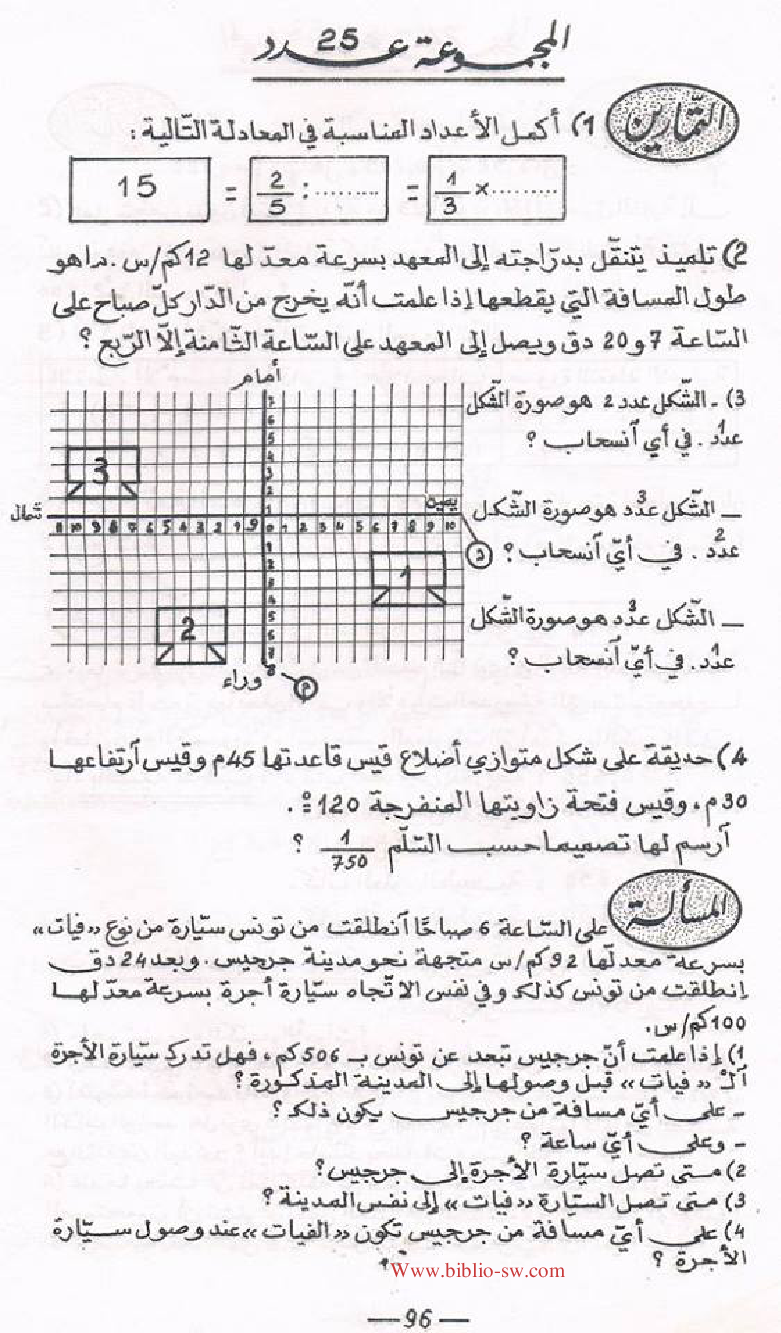 المجموعة عدد 25
التّمارين
1) أكمل الأعداد المناسبة في المعادلة التّالية :
15 = 2/5 : .......... = 1/3 × ..........
2) تلميذ يتنقّل بدرّاجته إلى المعهد بسرعة معدّلها 12كم/س . ماهو
طول المسافة التي يقطعها إذا علمت أنّه يخرج من الدّار كلّ صباح على
السّاعة 7 و20 دق ويصل إلى المعهد على السّاعة الثّامنة إلاّ الرّبع ؟
3) ـ الشّكل عدد 2 هو صورة الشّكل
عدد 1 . في أي آنسحاب ؟
ـ الشّكل عدد 3 هو صورة الشّكل
عدد 2 . في أيّ آنسحاب ؟
ـ الشّكل عدد 3 هو صورة الشّكل
عدد 1 . في أيّ آنسحاب ؟
أمام
7
6
5
4
3
2
1
شمال
يمين
0 1 2 3 4 5 6 7 8 9 10
1
2
3
4
5
6
7
8
وراء
د
م
3
1
2
4) حديقة على شكل متوازي أضلاع قيس قاعدتها 45م وقيس آرتفاعها
30م، وقيس فتحة زاويتها المنفرجة 120° .
آرسم لها تصميما حسب السّلّم 1/750 ؟
المسألة
على السّاعة 6 صباحًا آنطلقت من تونس سيّارة من نوع «فيات»
بسرعة معدلّها 92كم/س متجهة نحو مدينة جرجيس. وبعد 24 دق
إنطلقت من تونس كذلك وفي نفس الاتّجاه سيّارة أجرة بسرعة معدّلها
100كم/س.
1) إذا علمت أنّ جرجيس تبعد عن تونس بـ 506 كم، فهل تدرك سيّارة الأجرة
آلـ «فيات» قبل وصولها إلى المدينة المذكورة ؟
- على أيّ مسافة من جرجيس يكون ذلك ؟
- وعلى أيّ ساعة ؟
2) متى تصل سيّارة الأجرة إلى جرجيس؟
3) متى تصل السيّارة «فيات» إلى نفس المدينة ؟
4) على أيّ مسافة من جرجيس تكون «الفيات» عند وصول سيّارة
الأجرة ؟
Www.biblio-sw.com
— 96 —